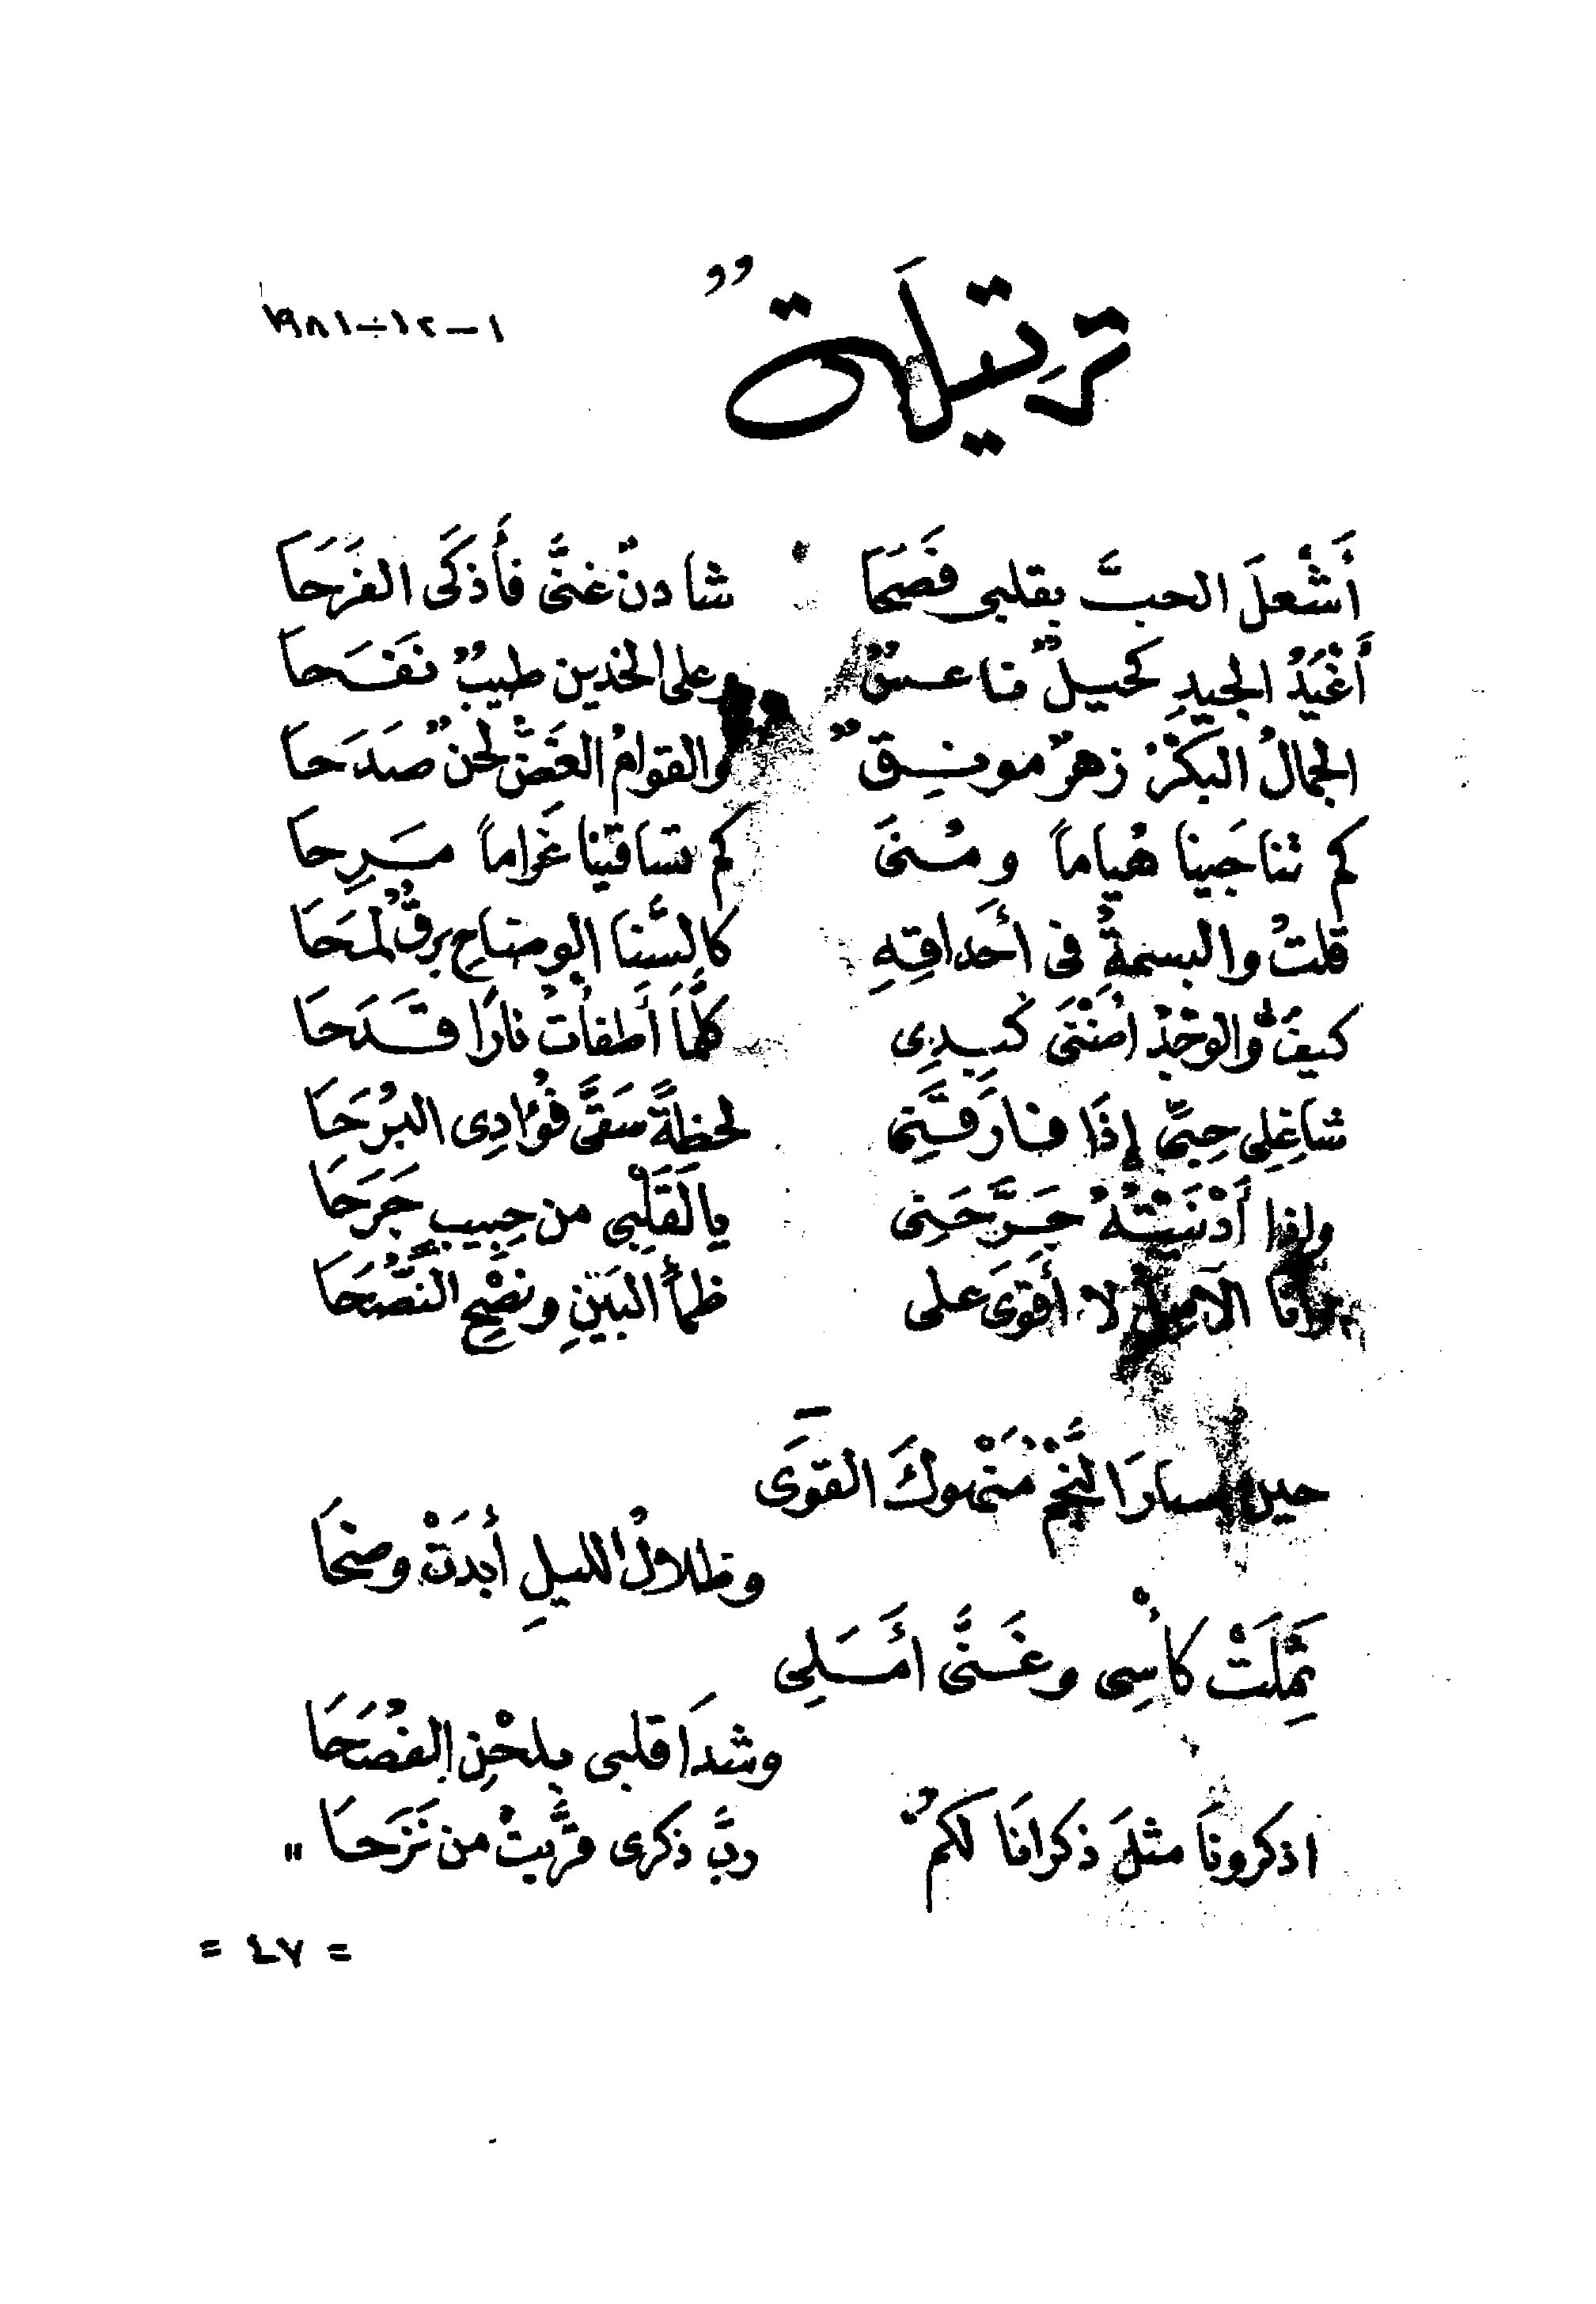 ترتيلَةٌ
١-١٢-١٩٨١
أَشْعلَ الحبَّ بقلبى فَصَحَا شادنٌ غنَّى فأَذكَى الفَرَحَا
أَغْيَدُ الجيدِ كَحيلٌ ناعسٌ وعلى الخدين طيبٌ نَفَحَا
الجمالُ البكْرُ زهرٌ مونِقٌ والقوامُ الغَضُّ لحنٌ صَدَحَا
كم تناجَينا هُياماً ومُنىَ كم تساقَيْنا غَراماً مَرِحا
قلتُ والبسمةُ فى أحَداقِهِ كالسَّنا الوضاحِ برقٌ لمَحَا
كيفَ والوَجْدُ اضْنَى كبِدِى كلَّمَا أطفأتُ نارًا قَدَحَا
شاغِلِى حِبىِّ إذَا فارَقَنِى لحظةً سَقىَّ فُؤادِى البُرَحَا
وإذا أَدْنَيْتُهُ جَرَّحَنِى يا لَقَلْبِى من حِبيبٍ جَرَحَا
وأنا الآملُ لا أَقوَى على ظمأَ البَينِ ونصْحِ النُّصَحَا
حين سارَ النَّجْمُ مَنْهوكَ القوَى
وظلالُ الليلِ أبدَتْ وضَحَا
ثَمِلَتْ كأْسِى وغَنَّى أمَلِى
وشدَا قلبى بلحْنِ الفُصَحَا
اذكرونَا مثلَ ذكرانَا لكمُ ربَّ ذكرى قرَّبتْ من نَزَحَا "
= ٤٧ =